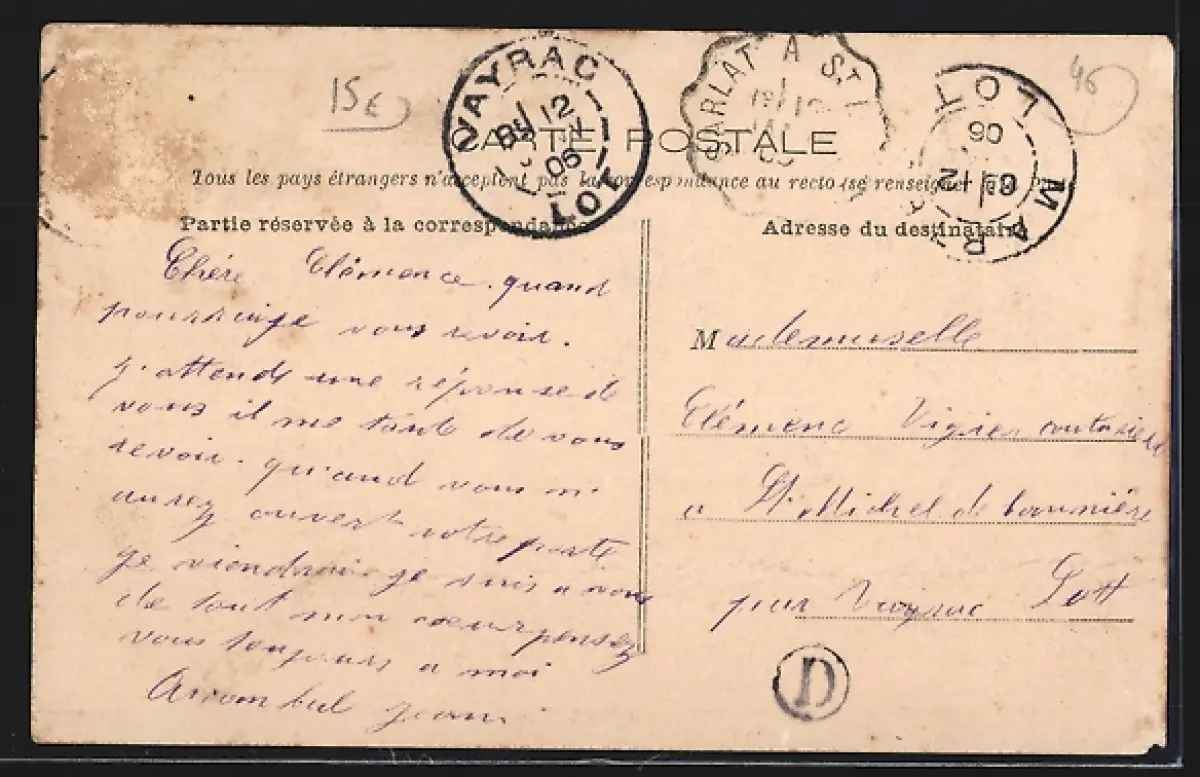 15€
46
VAYRAC
12
06
LOT
SARLAT A St
LOT
06
12
MAR
CARTE POSTALE
Tous les pays étrangers n'acceptent pas la correspondance au recto (se renseigner
Partie réservée à la correspondance
Adresse du destinataire
Chére Clémence. quand
pourraige vous revoir.
j'attends une réponse de
vous il me tarde de vous
revoir. qu'and vous m'
aurez ouvert votre porte
je viendrai je suis a vous
de tout mon cœur pensez
vous toujours a moi
Mademoiselle
Clémence Vigier couturière
a St. Michel de bannière
par Vayrac Lott
D